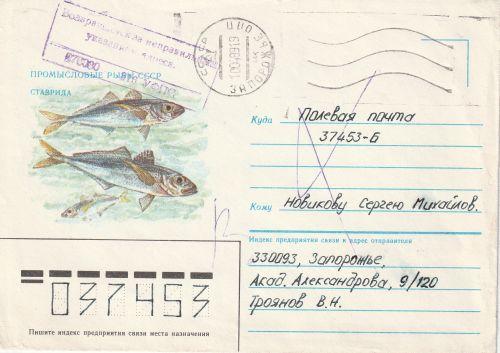 Возвращается за неправильным
указанием адреса.
ПРОМЫСЛОВЫЕ РЫБЫ СССР
СТАВРИДА
СССР
ЗАПОРОЖЬЕ
Куда Полевая почта
37453-Б
Кому Новикову Сергею Михайлов.
Индекс предприятия связи и адрес отправителя
330093, Запорожье,
Акад. Александрова, 9/120
Троянов В.Н.
037453
Пишите индекс предприятия связи места назначения